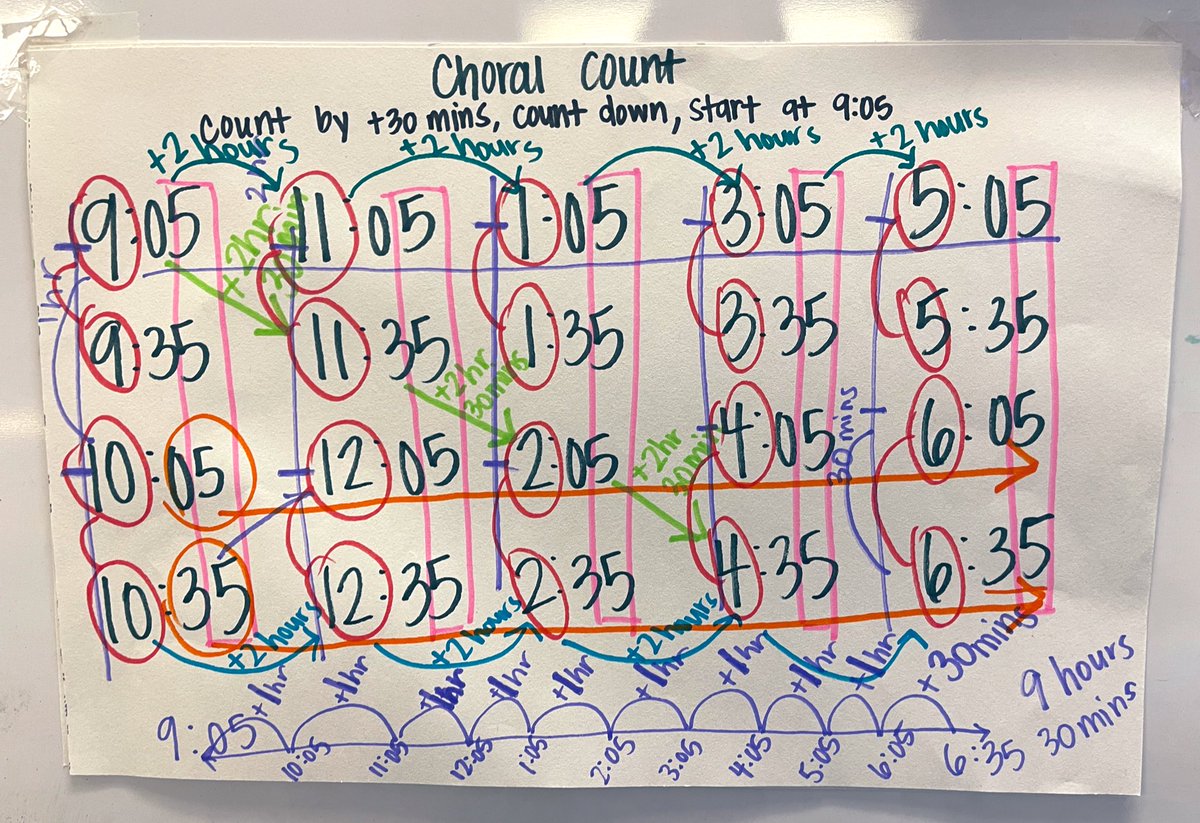 Choral Count
Count by +30 mins, count down, start at 9:05
+2 hours +2 hours +2 hours +2 hours
9:05 11:05 1:05 3:05 5:05
1hr
+2hr 30min
2 hr
9:35 11:35 1:35 3:35 5:35
+2hr 30mins
10:05 12:05 2:05 4:05 6:05
+2hr 30min
30mins
10:35 12:35 2:35 4:35 6:35
+2 hours +2 hours +2 hours
+1hr +1hr +1hr +1hr +1hr +1hr +1hr +1hr +1hr +30mins
9:05 10:05 11:05 12:05 1:05 2:05 3:05 4:05 5:05 6:05 6:35
9 hours
30mins